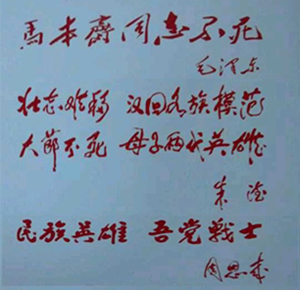 馬本齋同志不死
毛泽东
壮志难移 汉回各族模范
大節不死 母子两代英雄
朱德
民族英雄 吾党战士
周恩来